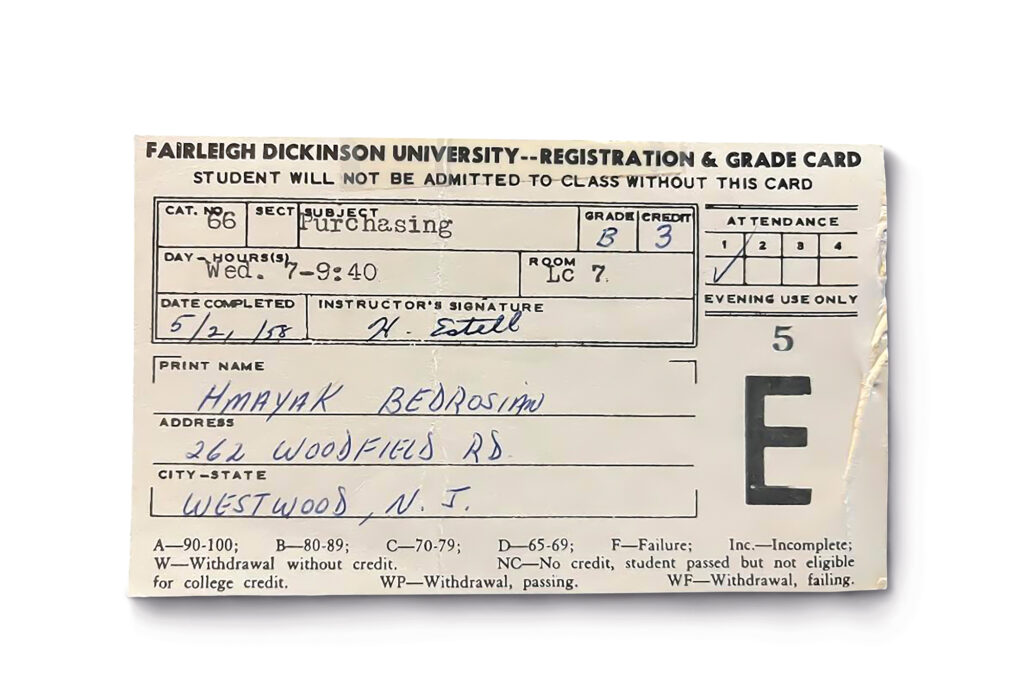 FAIRLEIGH DICKINSON UNIVERSITY--REGISTRATION & GRADE CARD
STUDENT WILL NOT BE ADMITTED TO CLASS WITHOUT THIS CARD
CAT. NO. SECT SUBJECT GRADE CREDIT
66 Purchasing B 3
ATTENDANCE
1 2 3 4
✓
EVENING USE ONLY
DAY-HOURS(S) ROOM
Wed. 7-9:40 Lc 7
DATE COMPLETED INSTRUCTOR'S SIGNATURE
5/21/58 H. Estell
5
E
PRINT NAME
HMAYAK BEDROSIAN
ADDRESS
262 WOODFIELD RD.
CITY-STATE
WESTWOOD, N. J.
A—90-100; B—80-89; C—70-79; D—65-69; F—Failure; Inc.—Incomplete;
W—Withdrawal without credit. NC—No credit, student passed but not eligible
for college credit. WP—Withdrawal, passing. WF—Withdrawal, failing.